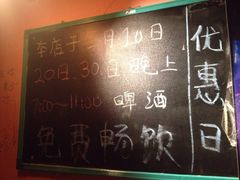 本店于二月10日
20日、30日晚上
7:00~11:00 啤酒
免费畅饮
优惠日